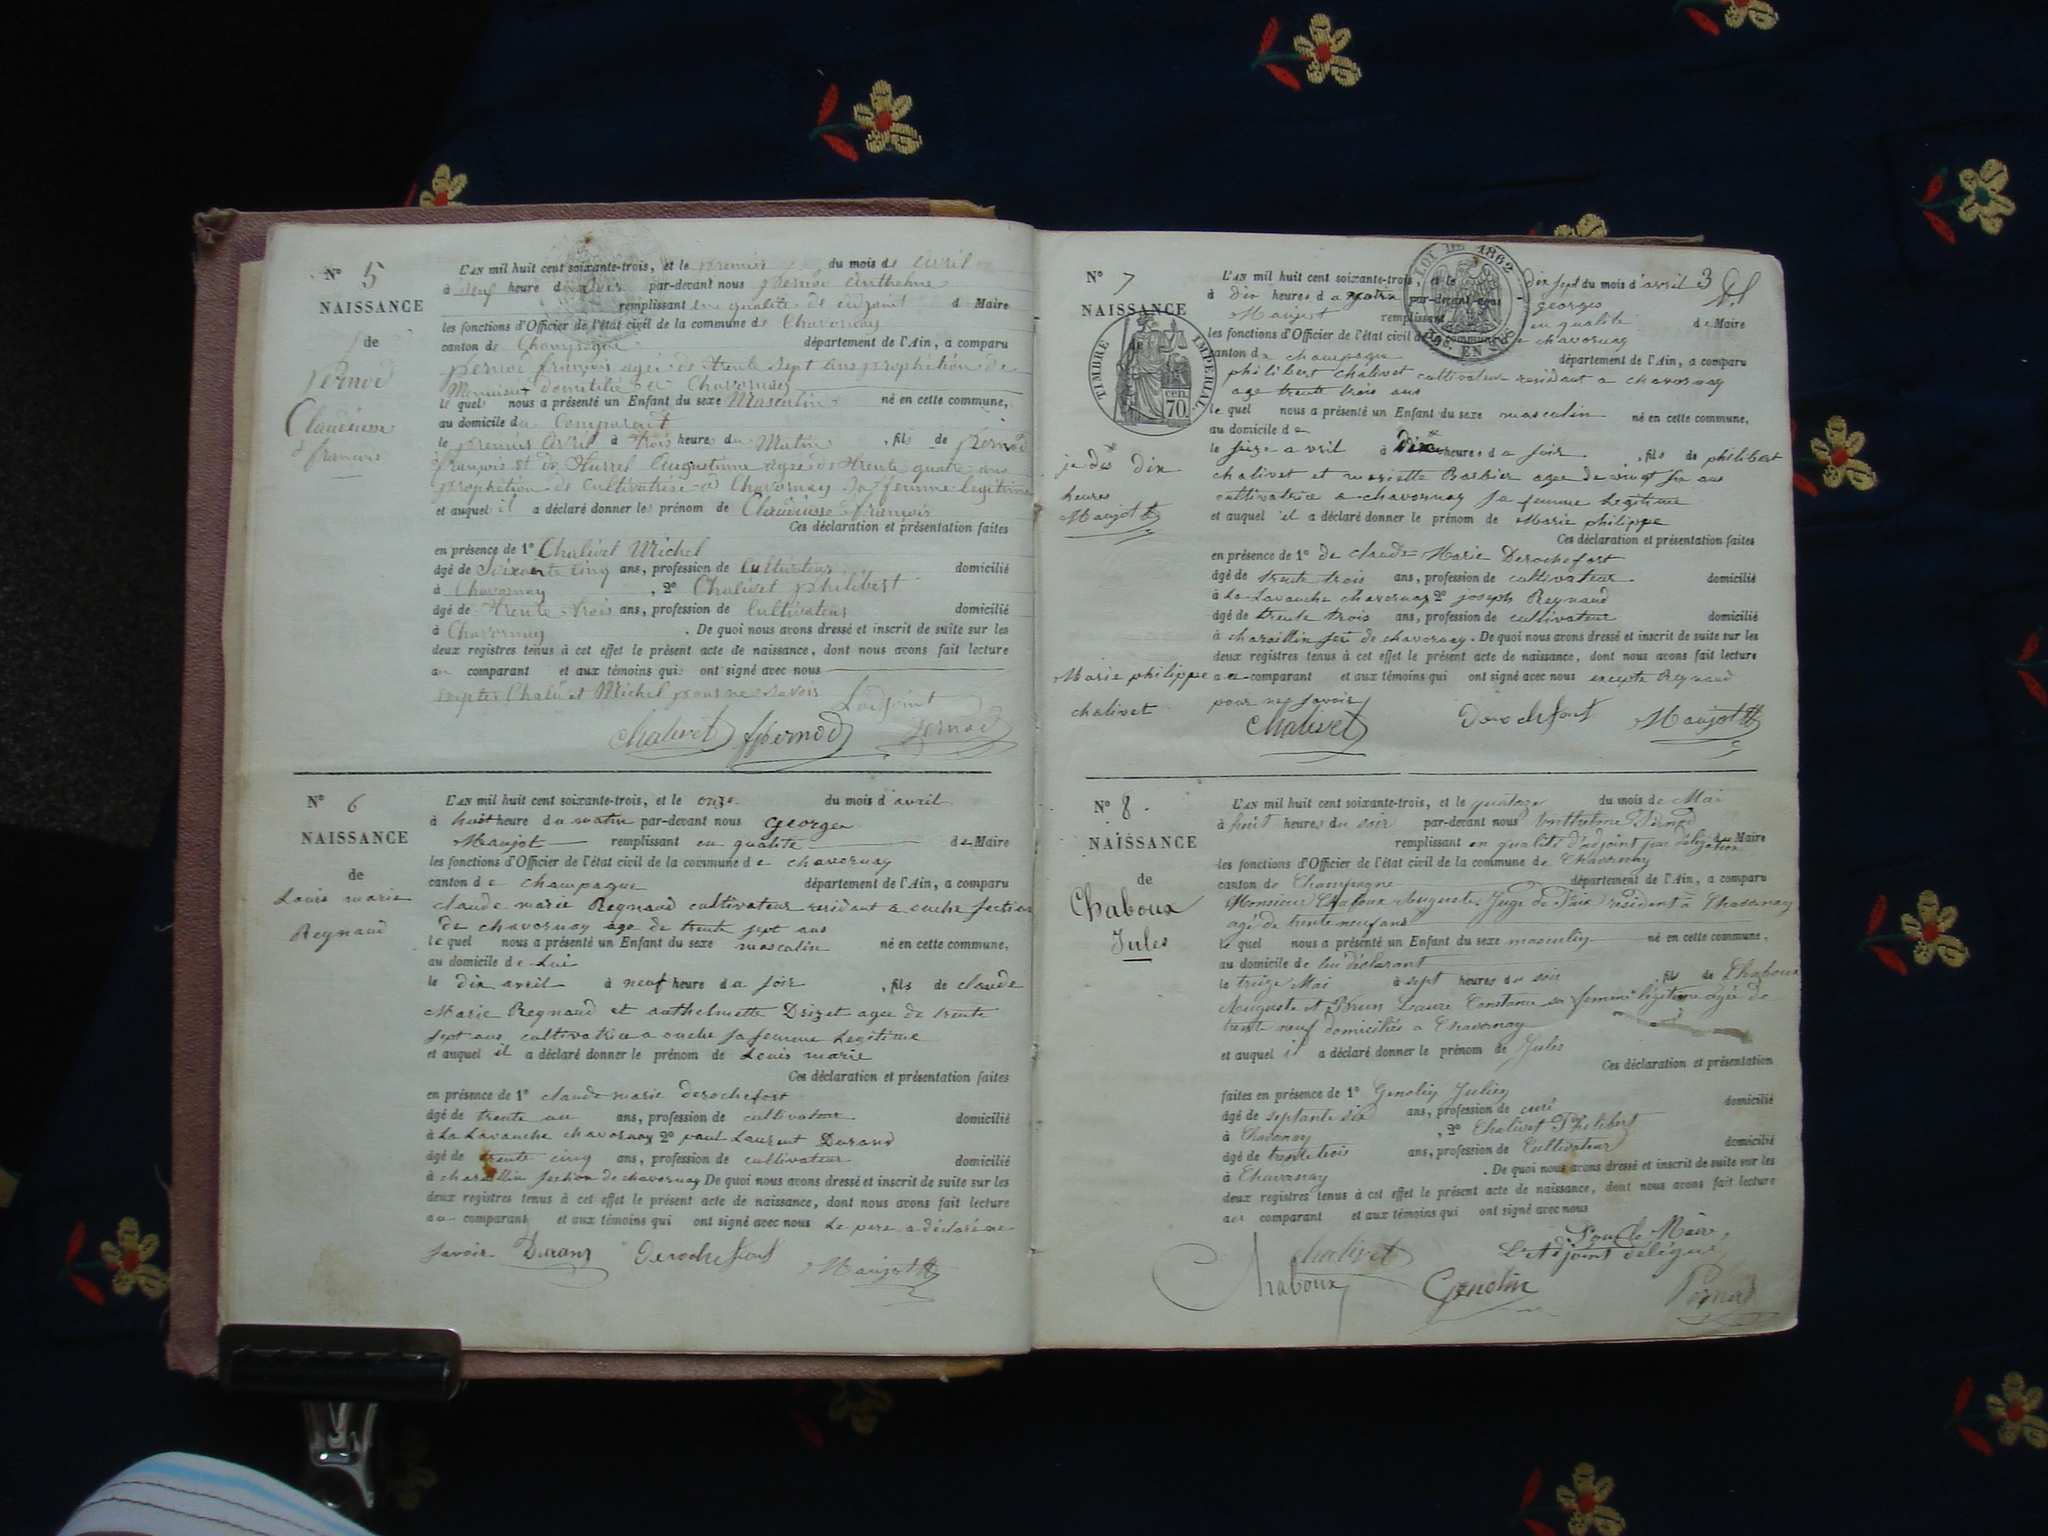 N° 5
NAISSANCE
de
Pernod
Claudiusse
françois
L'AN mil huit cent soixante-trois, et le premier du mois de avril
à neuf heure du par-devant nous pernod anthelme
remplissant en qualité de adjoint d Maire
les fonctions d'Officier de l'état civil de la commune de Chavornay
canton de Champagne département de l'Ain, a comparu
pernod françois agé de trente sept ans prophétion de
Menuisier domicilié à Chavornay
le quel nous a présenté un Enfant du sexe Masculin né en cette commune,
au domicile du Comparant
le premier avril à trois heure du Matin , fils de pernod
françois et de Hurrel Augustinne agée de trente quatre ans
prophétion de Cultivatrise à Chavornay sa femme legitime
et auquel il a déclaré donner le prénom de Claudiusse françois
Ces déclaration et présentation faites
en présence de 1° Chalivet Michel
âgé de Soixante cinq ans, profession de Cultivateur domicilié
à Chavornay , 2° Chalivet philibert
âgé de trente-trois ans, profession de Cultivateur domicilié
à Chavornay . De quoi nous avons dressé et inscrit de suite sur les
deux registres tenus à cet effet le présent acte de naissance, dont nous avons fait lecture
au comparant et aux témoins qui ont signé avec nous
Chalivet Michel pour ne savoir L'adjoint
Chalivet fpernod pernod
N° 6
NAISSANCE
de
Louis marie
Reynaud
L'AN mil huit cent soixante-trois, et le onze du mois d'avril
à huit heure du matin par-devant nous george
Maujot remplissant en qualité de Maire
les fonctions d'Officier de l'état civil de la commune de chavornay
canton de champagne département de l'Ain, a comparu
claude marie Reynaud cultivateur residant a ouche section
de chavornay age de trente sept ans
le quel nous a présenté un Enfant du sexe masculin né en cette commune,
au domicile de Lui
le dix avril à neuf heure du soir , fils de claude
Marie Reynaud et anthelmette Drizet agee de trente
sept ans cultivatrice a ouche sa femme Legitime
et auquel il a déclaré donner le prénom de Louis marie
Ces déclaration et présentation faites
en présence de 1° claude marie derochefort
âgé de trente un ans, profession de cultivateur domicilié
à La Lavanche chavornay 2° paul Laurent Durand
âgé de trente cinq ans, profession de cultivateur domicilié
à charaillin section de chavornay De quoi nous avons dressé et inscrit de suite sur les
deux registres tenus à cet effet le présent acte de naissance, dont nous avons fait lecture
au comparant et aux témoins qui ont signé avec nous Le pere a déclaré ne
savoir Durand Derochefort Maujot
N° 7
NAISSANCE
TIMBRE IMPERIAL
70 cen.
je dis dix
heures
Maujot
Marie philippe
chalivet
LOI DE 1862
L'AN mil huit cent soixante-trois, et le Dix sept du mois d'avril 3
à dix heures du matin par-devant nous georges
Maujot remplissant en qualité de Maire
les fonctions d'Officier de l'état civil de la commune de chavornay
canton de champagne département de l'Ain, a comparu
philibert chalivet cultivateur residant a chavornay
age trente trois ans
le quel nous a présenté un Enfant du sexe masculin né en cette commune,
au domicile de
le seize avril à Dix heures du soir , fils de philibert
chalivet et mariette Barbier agee de vingt six ans
cultivatrice a chavornay sa femme Legitime
et auquel il a déclaré donner le prénom de Marie philippe
Ces déclaration et présentation faites
en présence de 1° de claude Marie Derochefort
âgé de trente trois ans, profession de cultivateur domicilié
à La Lavanche chavornay 2° joseph Reynaud
âgé de trente trois ans, profession de cultivateur domicilié
à charaillin de chavornay. De quoi nous avons dressé et inscrit de suite sur les
deux registres tenus à cet effet le présent acte de naissance, dont nous avons fait lecture
au comparant et aux témoins qui ont signé avec nous excepte Reynaud
pour ne savoir
Chalivet Derochefort Maujot
N° 8
NAISSANCE
de
Chaboux
Jules
L'AN mil huit cent soixante-trois, et le quatorze du mois de Mai
à huit heures du soir par-devant nous Anthelme Pernod
remplissant en qualité d'adjoint par délégation du Maire
les fonctions d'Officier de l'état civil de la commune de Chavornay
canton de Champagne département de l'Ain, a comparu
Monsieur Chaboux Auguste Juge de Paix résident à Chavornay
agé de trente neuf ans
le quel nous a présenté un Enfant du sexe masculin né en cette commune,
au domicile de lui déclarant
le treize Mai à sept heures du soir , fils de Chaboux
Auguste et Brun Laure Constance sa femme légitime agée de
trente neuf domiciliés à Chavornay
et auquel il a déclaré donner le prénom de Jules
Ces déclaration et présentation
faites en présence de 1° Genolin Julien
âgé de septante six ans, profession de curé domicilié
à Chavornay , 2° Chalivet Philibert
âgé de trente trois ans, profession de Cultivateur domicilié
à Chavornay . De quoi nous avons dressé et inscrit de suite sur les
deux registres tenus à cet effet le présent acte de naissance, dont nous avons fait lecture
au comparant et aux témoins qui ont signé avec nous
Pour le Maire,
L'Adjoint délégué,
Chalivet
Chaboux Genolin Pernod